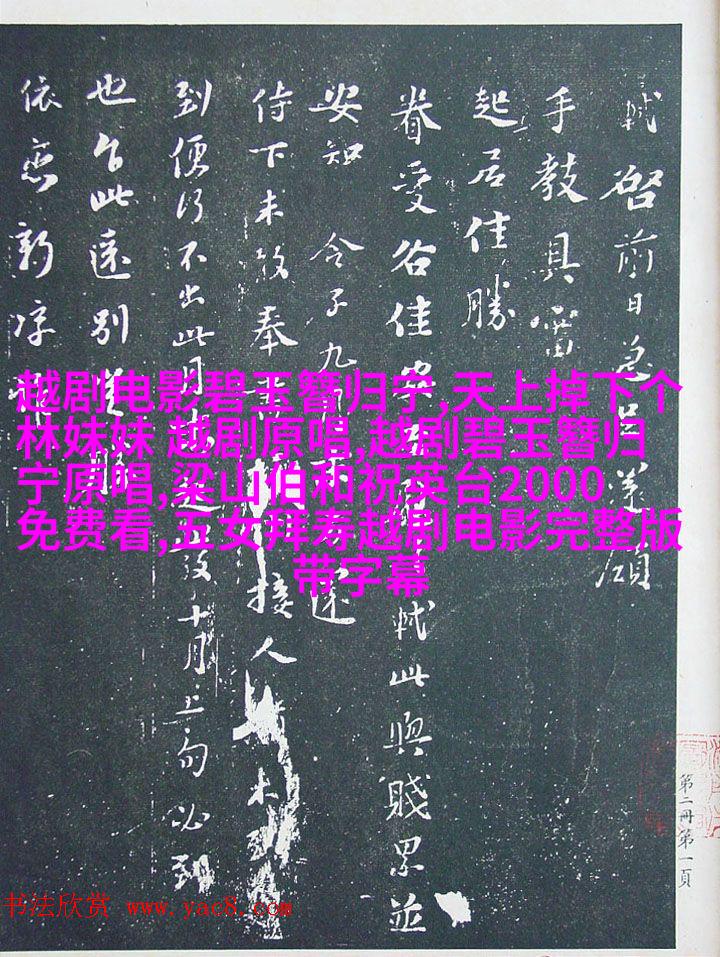 軾啓前日急足還領
手教具審
起居佳勝
眷受各佳安軾此與賤累並
安知 令子九
侍下未敢奉接人
到便行不出此月十月上旬必到
也乍此遠別
依戀新凉
越剧电影碧玉簪归宁,天上掉下个
林妹妹 越剧原唱,越剧碧玉簪归
宁原唱,梁山伯和祝英台2000
免费看,五女拜寿越剧电影完整版
带字幕
第二冊第一頁
书法欣赏 www.yac8.com